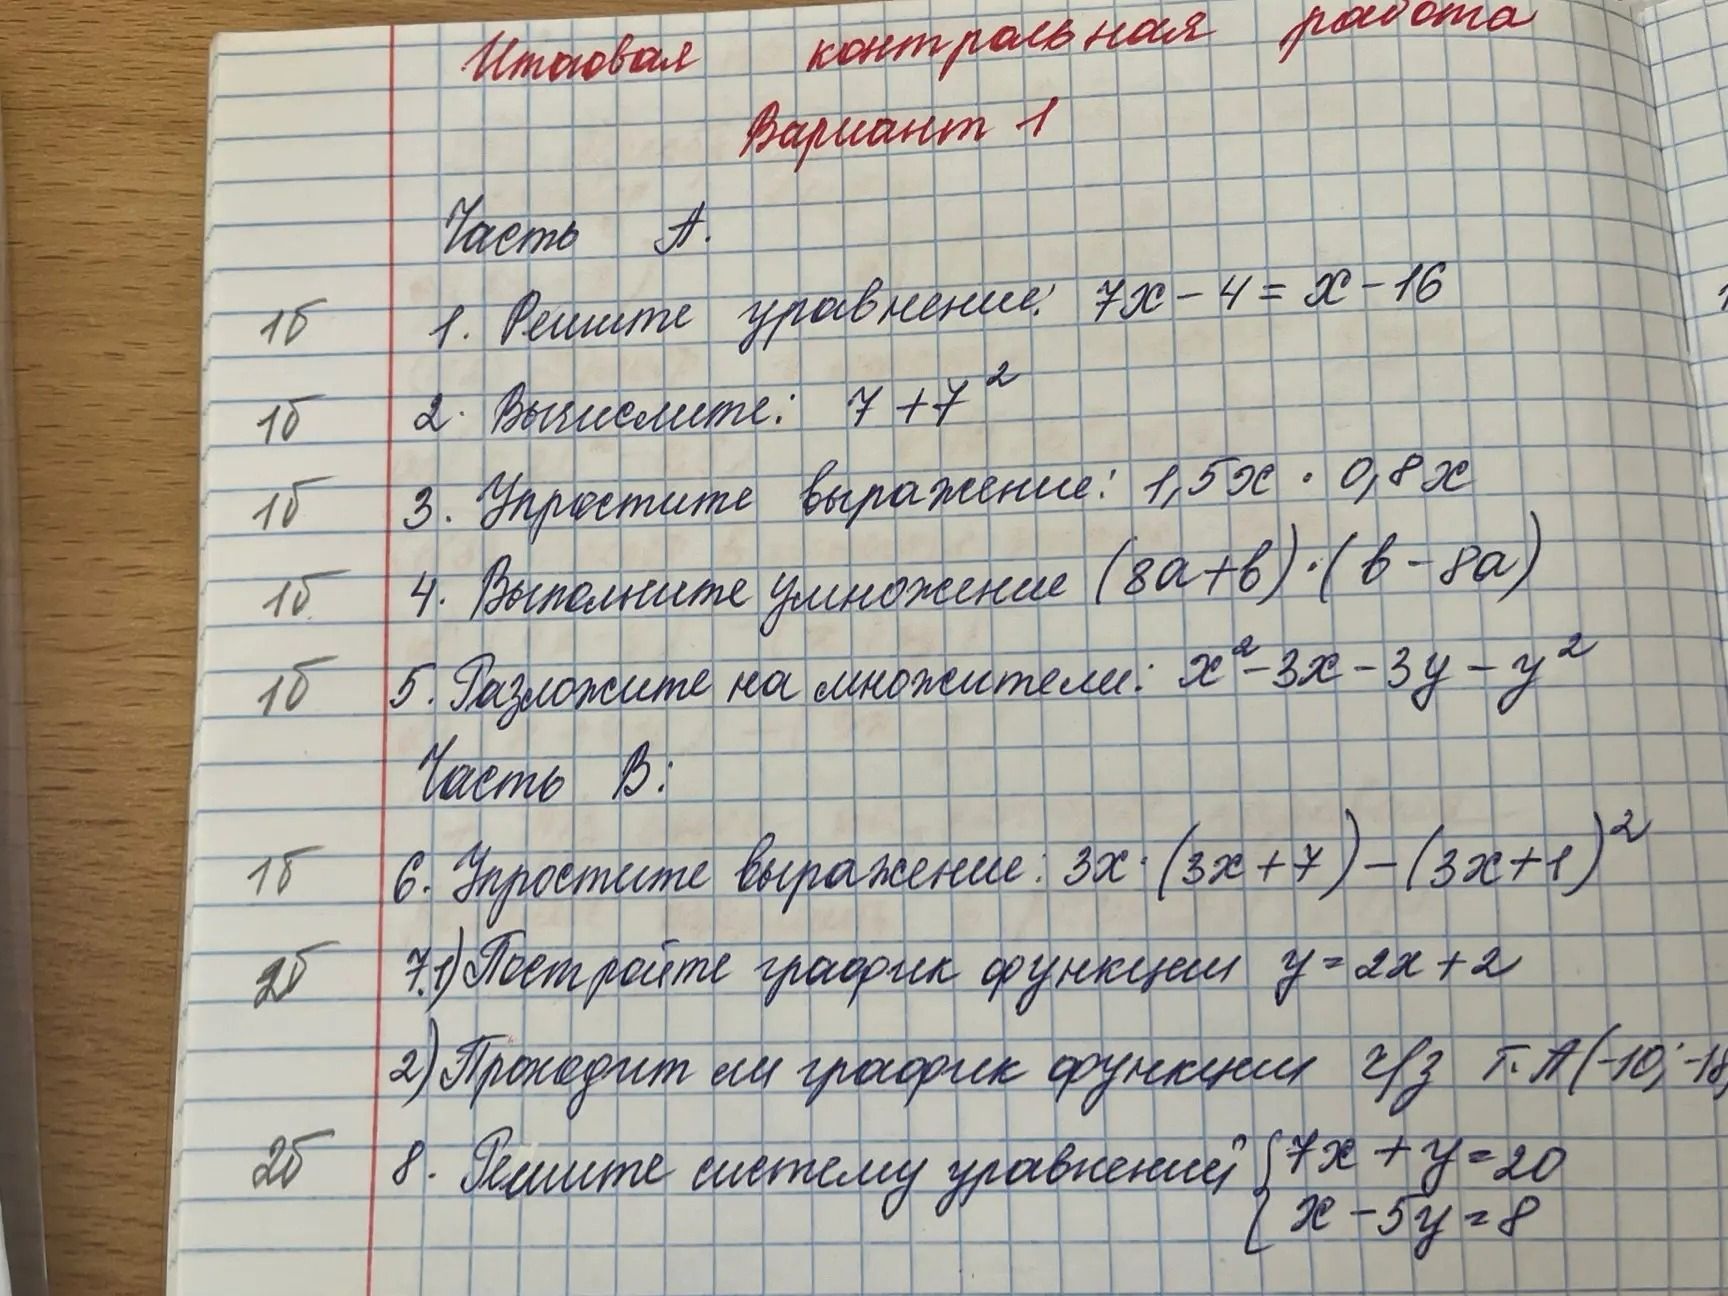 Итоговая контрольная работа
Вариант 1
Часть А.
1б 1. Решите уравнение: 7x - 4 = x - 16
1б 2. Вычислите: 7 + 7²
1б 3. Упростите выражение: 1,5x · 0,8x
1б 4. Выполните умножение (8a+b)·(b-8a)
1б 5. Разложите на множители: x² - 3x - 3y - y²
Часть В:
1б 6. Упростите выражение: 3x·(3x+7)-(3x+1)²
2б 7.1) Постройте график функции y = 2x + 2
2) Проходит ли график функции ч/з т. А(-10; -18
2б 8. Решите систему уравнений { 7x + y = 20
x - 5y = 8